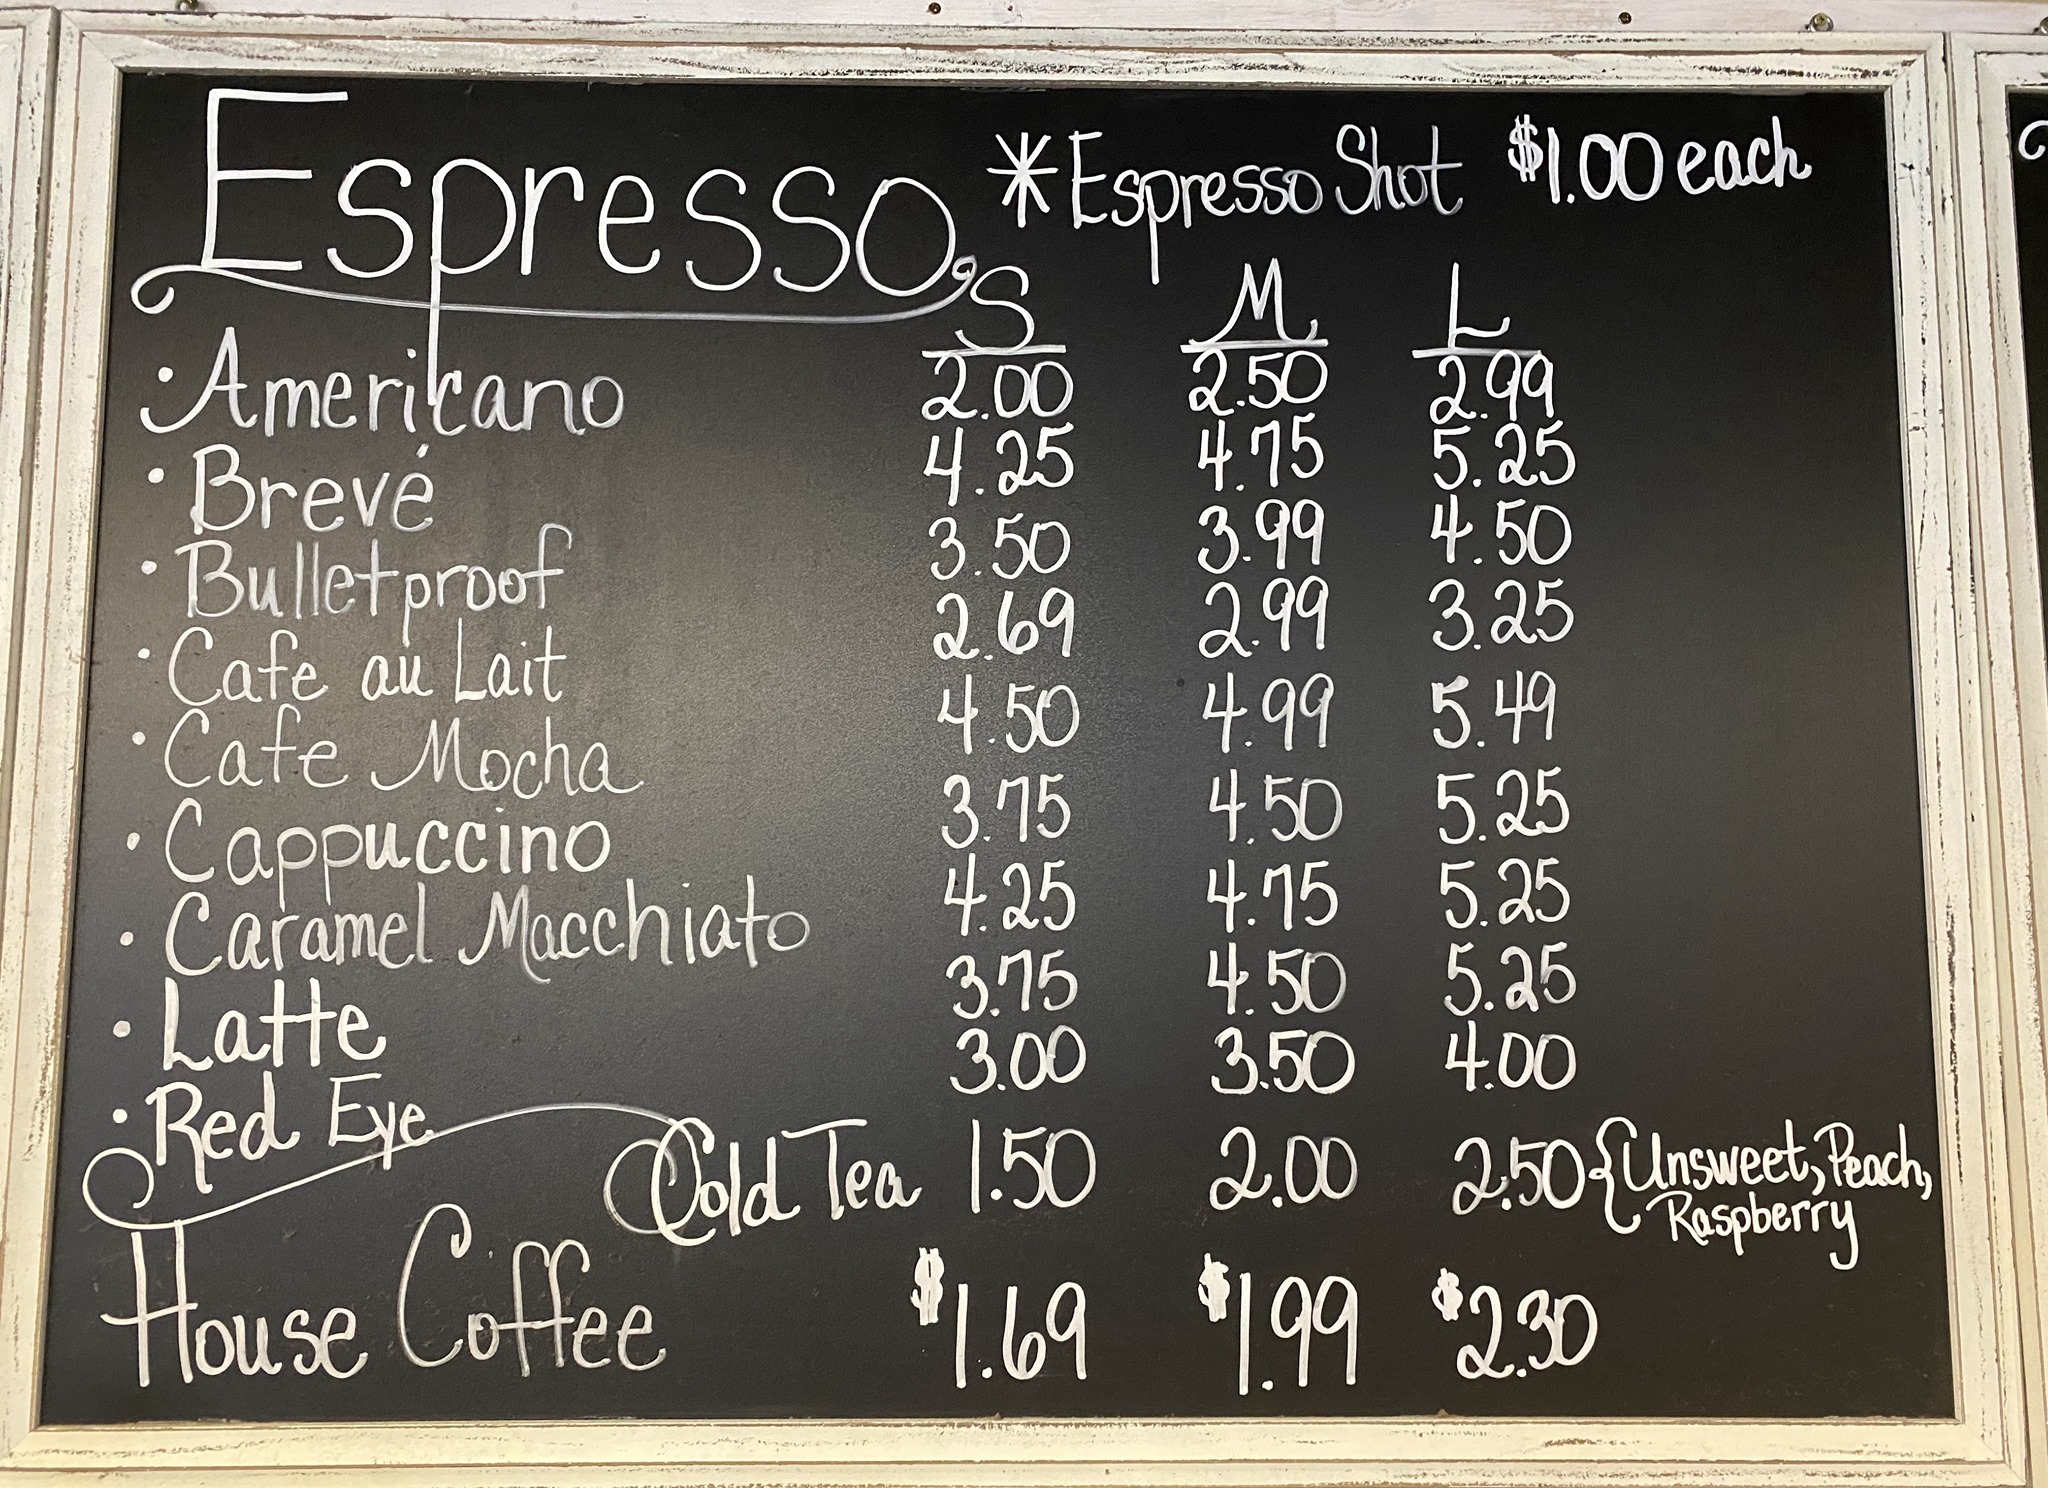 Espresso
*Espresso Shot $1.00 each
S M L
· Americano 2.00 2.50 2.99
· Brevé 4.25 4.75 5.25
· Bulletproof 3.50 3.99 4.50
· Cafe au Lait 2.69 2.99 3.25
· Cafe Mocha 4.50 4.99 5.49
· Cappuccino 3.75 4.50 5.25
· Caramel Macchiato 4.25 4.75 5.25
· Latte 3.75 4.50 5.25
· Red Eye 3.00 3.50 4.00
Cold Tea 1.50 2.00 2.50 { Unsweet, Peach,
Raspberry
House Coffee $1.69 $1.99 $2.30